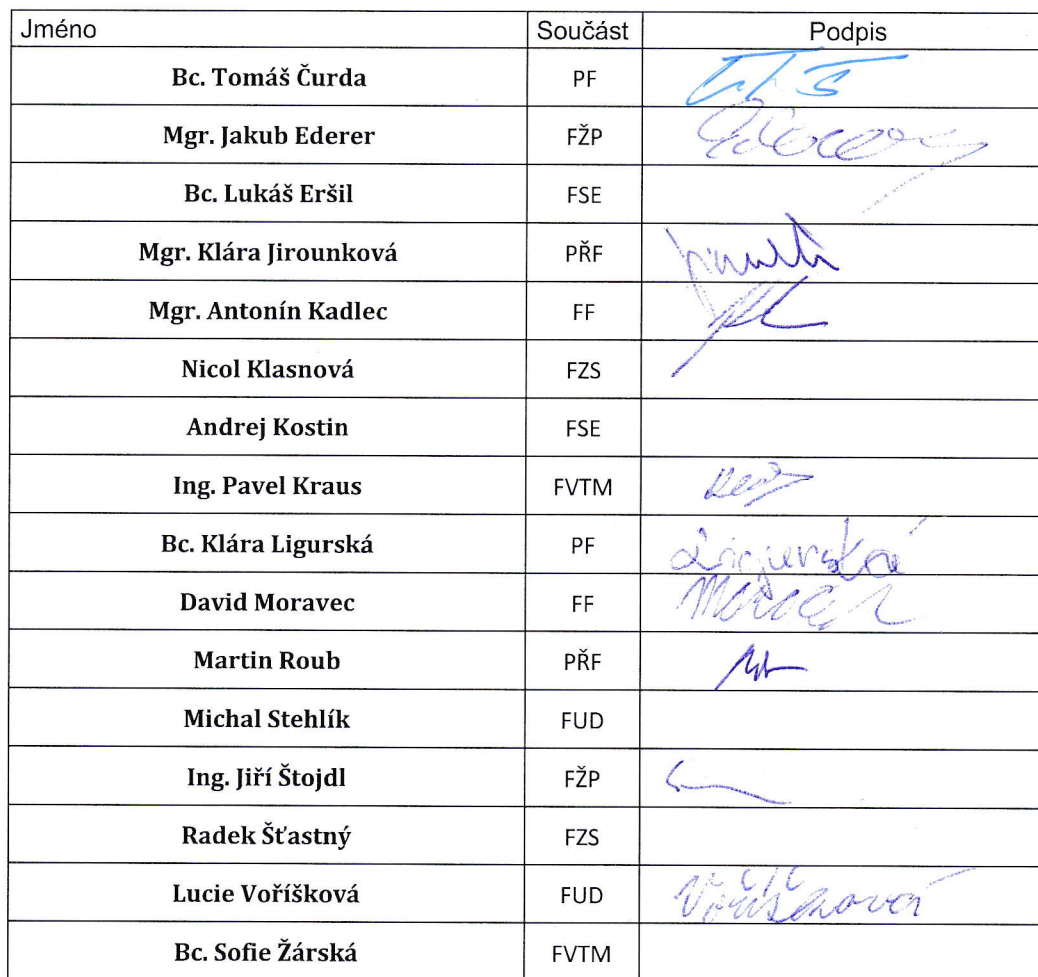 Jméno Součást Podpis
Bc. Tomáš Čurda PF
Mgr. Jakub Ederer FŽP
Bc. Lukáš Eršil FSE
Mgr. Klára Jirounková PŘF
Mgr. Antonín Kadlec FF
Nicol Klasnová FZS
Andrej Kostin FSE
Ing. Pavel Kraus FVTM
Bc. Klára Ligurská PF Ligurská
David Moravec FF
Martin Roub PŘF
Michal Stehlík FUD
Ing. Jiří Štojdl FŽP
Radek Šťastný FZS
Lucie Voříšková FUD Voříšková
Bc. Sofie Žárská FVTM